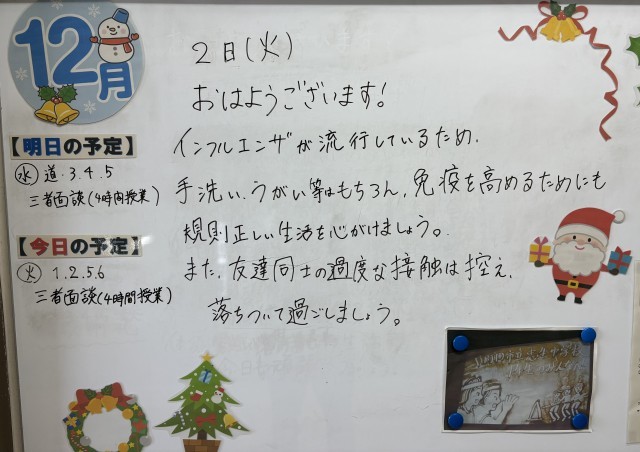 12月
2日(火)
おはようございます!
インフルエンザが流行しているため、
手洗い、うがい等はもちろん、免疫を高めるためにも
規則正しい生活を心がけましょう。
また、友達同士の過度な接触は控え、
落ちついて過ごしましょう。
【明日の予定】
㊌ 道.3.4.5
三者面談(4時間授業)
【今日の予定】
㊋ 1.2.5.6
三者面談(4時間授業)